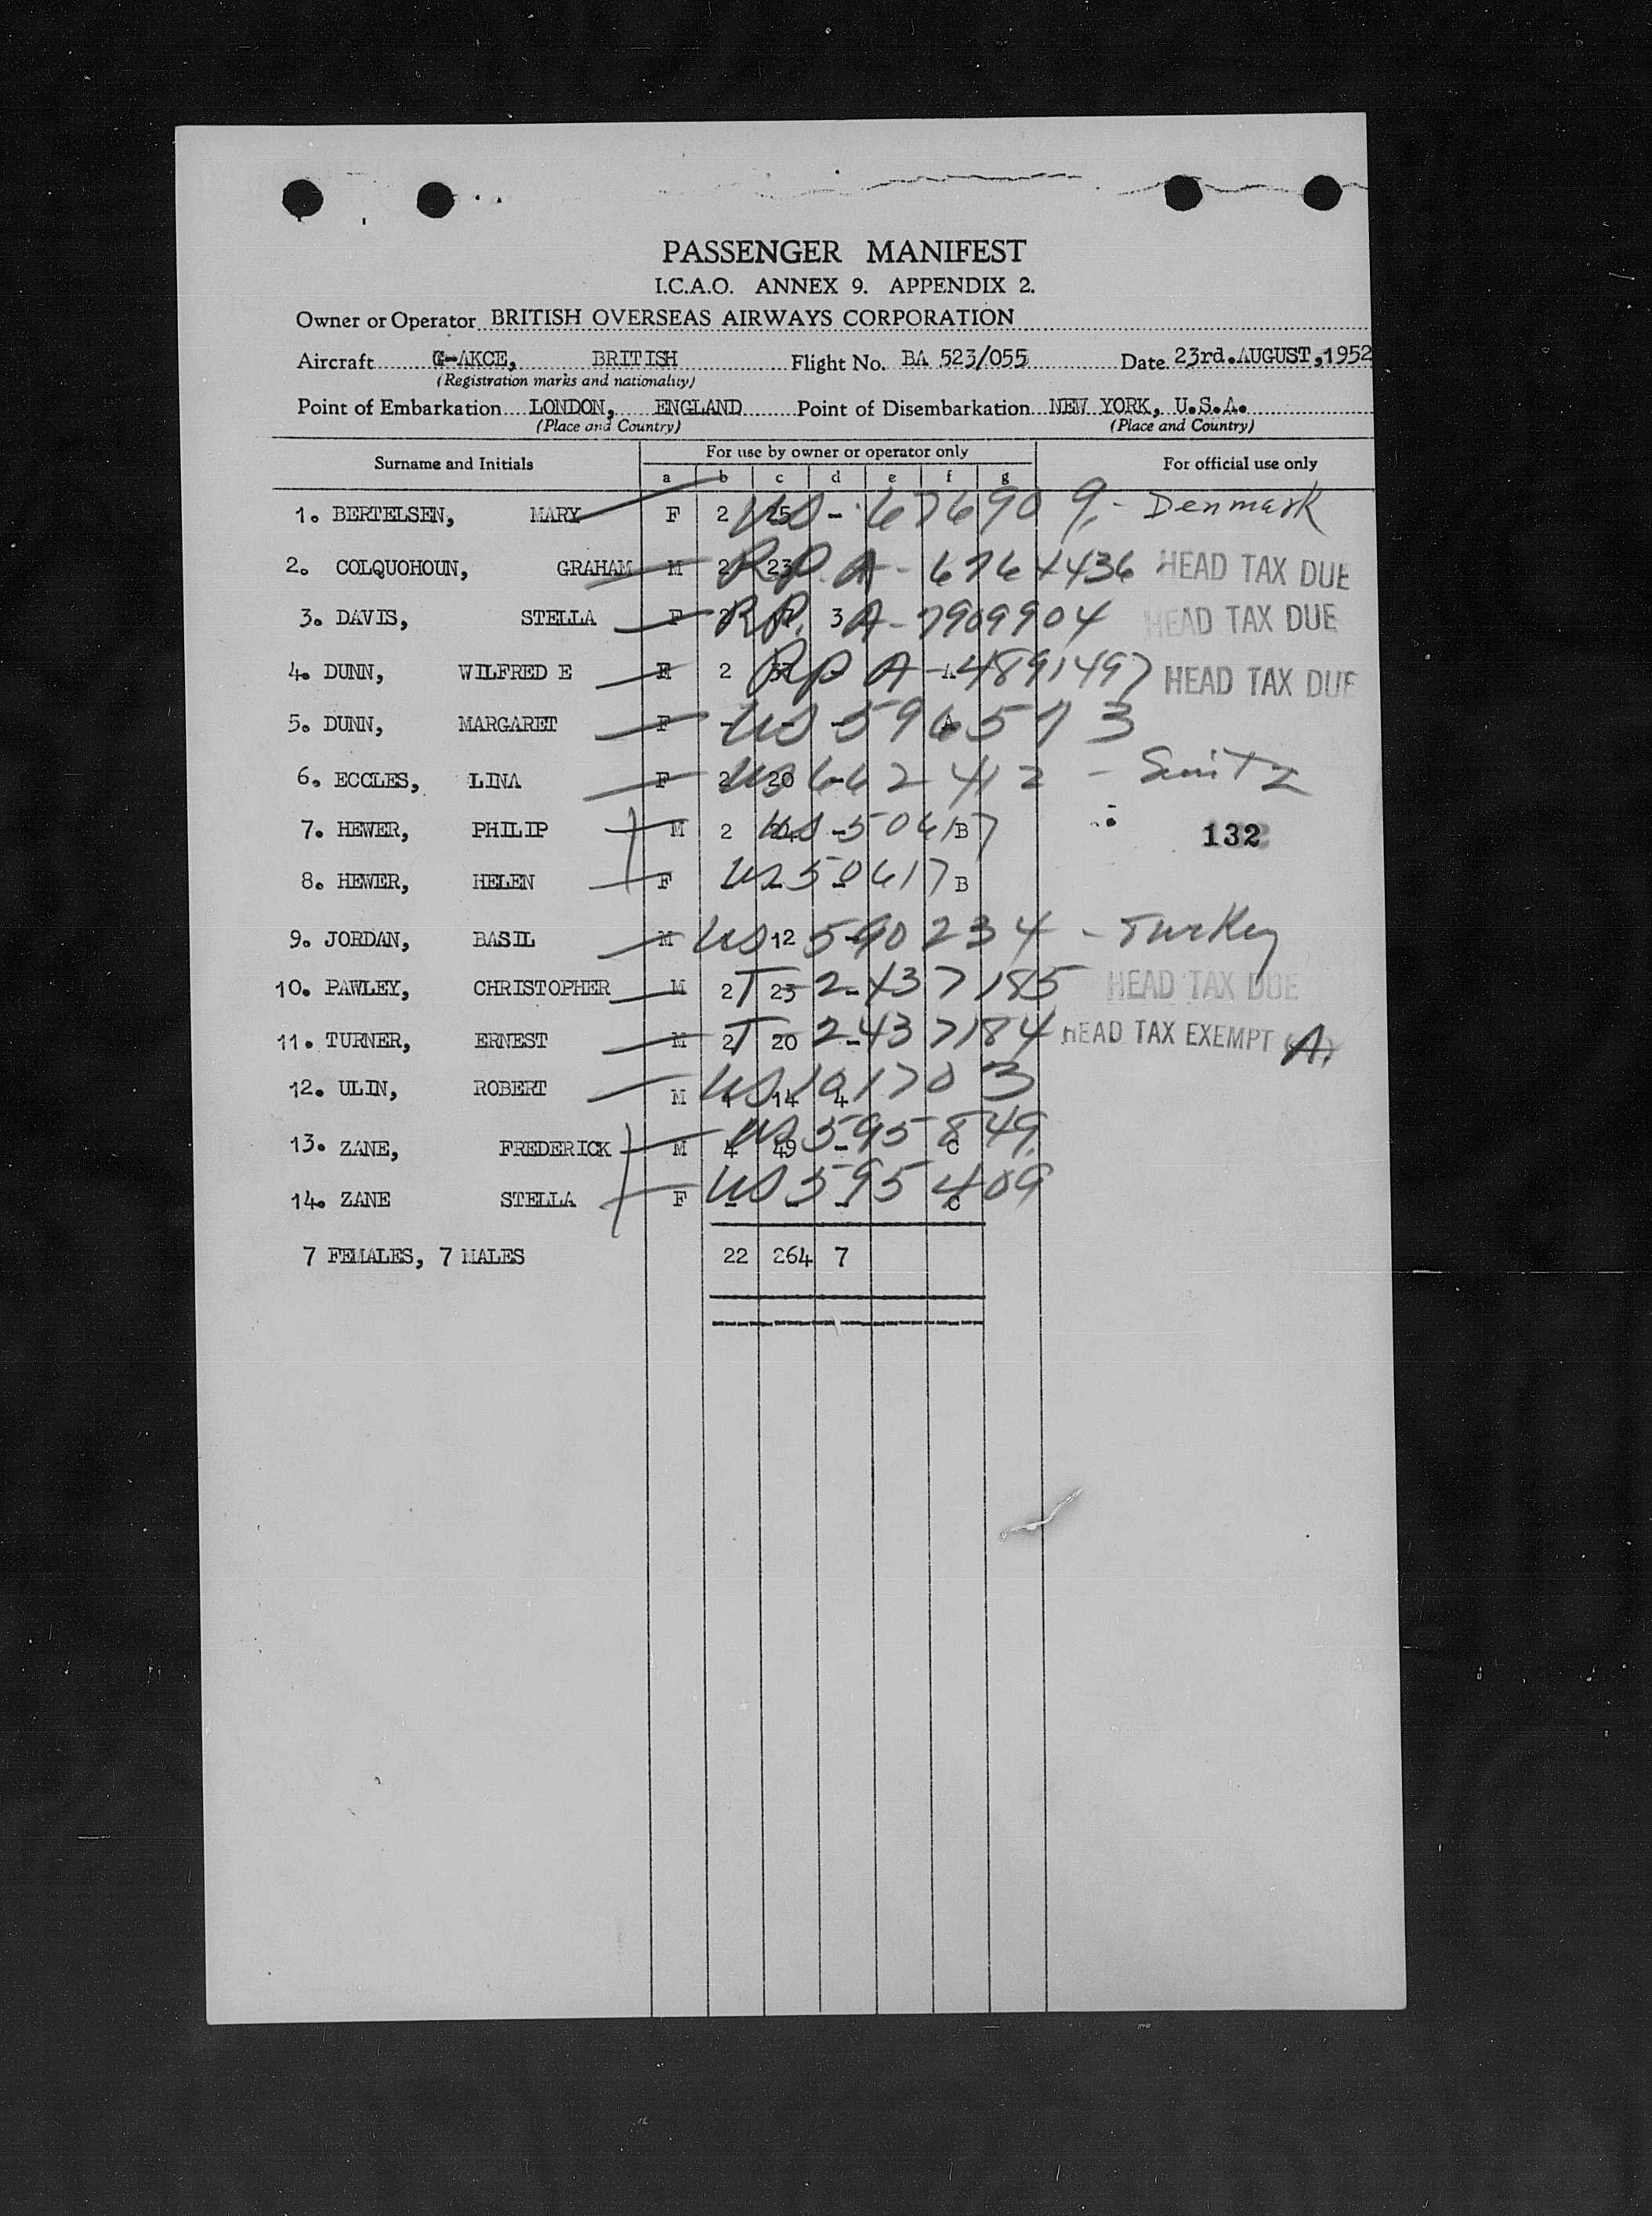 PASSENGER MANIFEST
I.C.A.O. ANNEX 9. APPENDIX 2.
Owner or Operator BRITISH OVERSEAS AIRWAYS CORPORATION
Aircraft G-AKCE, BRITISH Flight No. BA 523/055 Date 23rd.AUGUST,1952
(Registration marks and nationality)
Point of Embarkation LONDON, ENGLAND Point of Disembarkation NEW YORK, U.S.A.
(Place and Country) (Place and Country)
Surname and Initials For use by owner or operator only For official use only
a b c d e f g
1. BERTELSEN, MARY F 2 25 - US - 676909 - Denmark
2. COLQUOHOUN, GRAHAM M 2 23 RP A - 6764436 HEAD TAX DUE
3. DAVIS, STELLA F 2 17 3 RP. A - 7909904 HEAD TAX DUE
4. DUNN, WILFRED E 2 RP A - 4891497 HEAD TAX DUE
5. DUNN, MARGARET F - - - A US 596573
6. ECCLES, LINA F 2 20 - US 662412 -
7. HEWER, PHILIP M 2 - B US 50617 132
8. HEWER, HELEN F - - - B US 50617
9. JORDAN, BASIL M 12 - US 590234 - Turkey
10. PAWLEY, CHRISTOPHER M 2 23 - T - 2437185 HEAD TAX DUE
11. TURNER, ERNEST M 2 20 - T 2437184 HEAD TAX EXEMPT A.
12. ULIN, ROBERT M 14 4 US 101703
13. ZANE, FREDERICK M 4 49 - C US 595849
14. ZANE STELLA F - - - C US 595409
7 FEMALES, 7 MALES 22 264 7